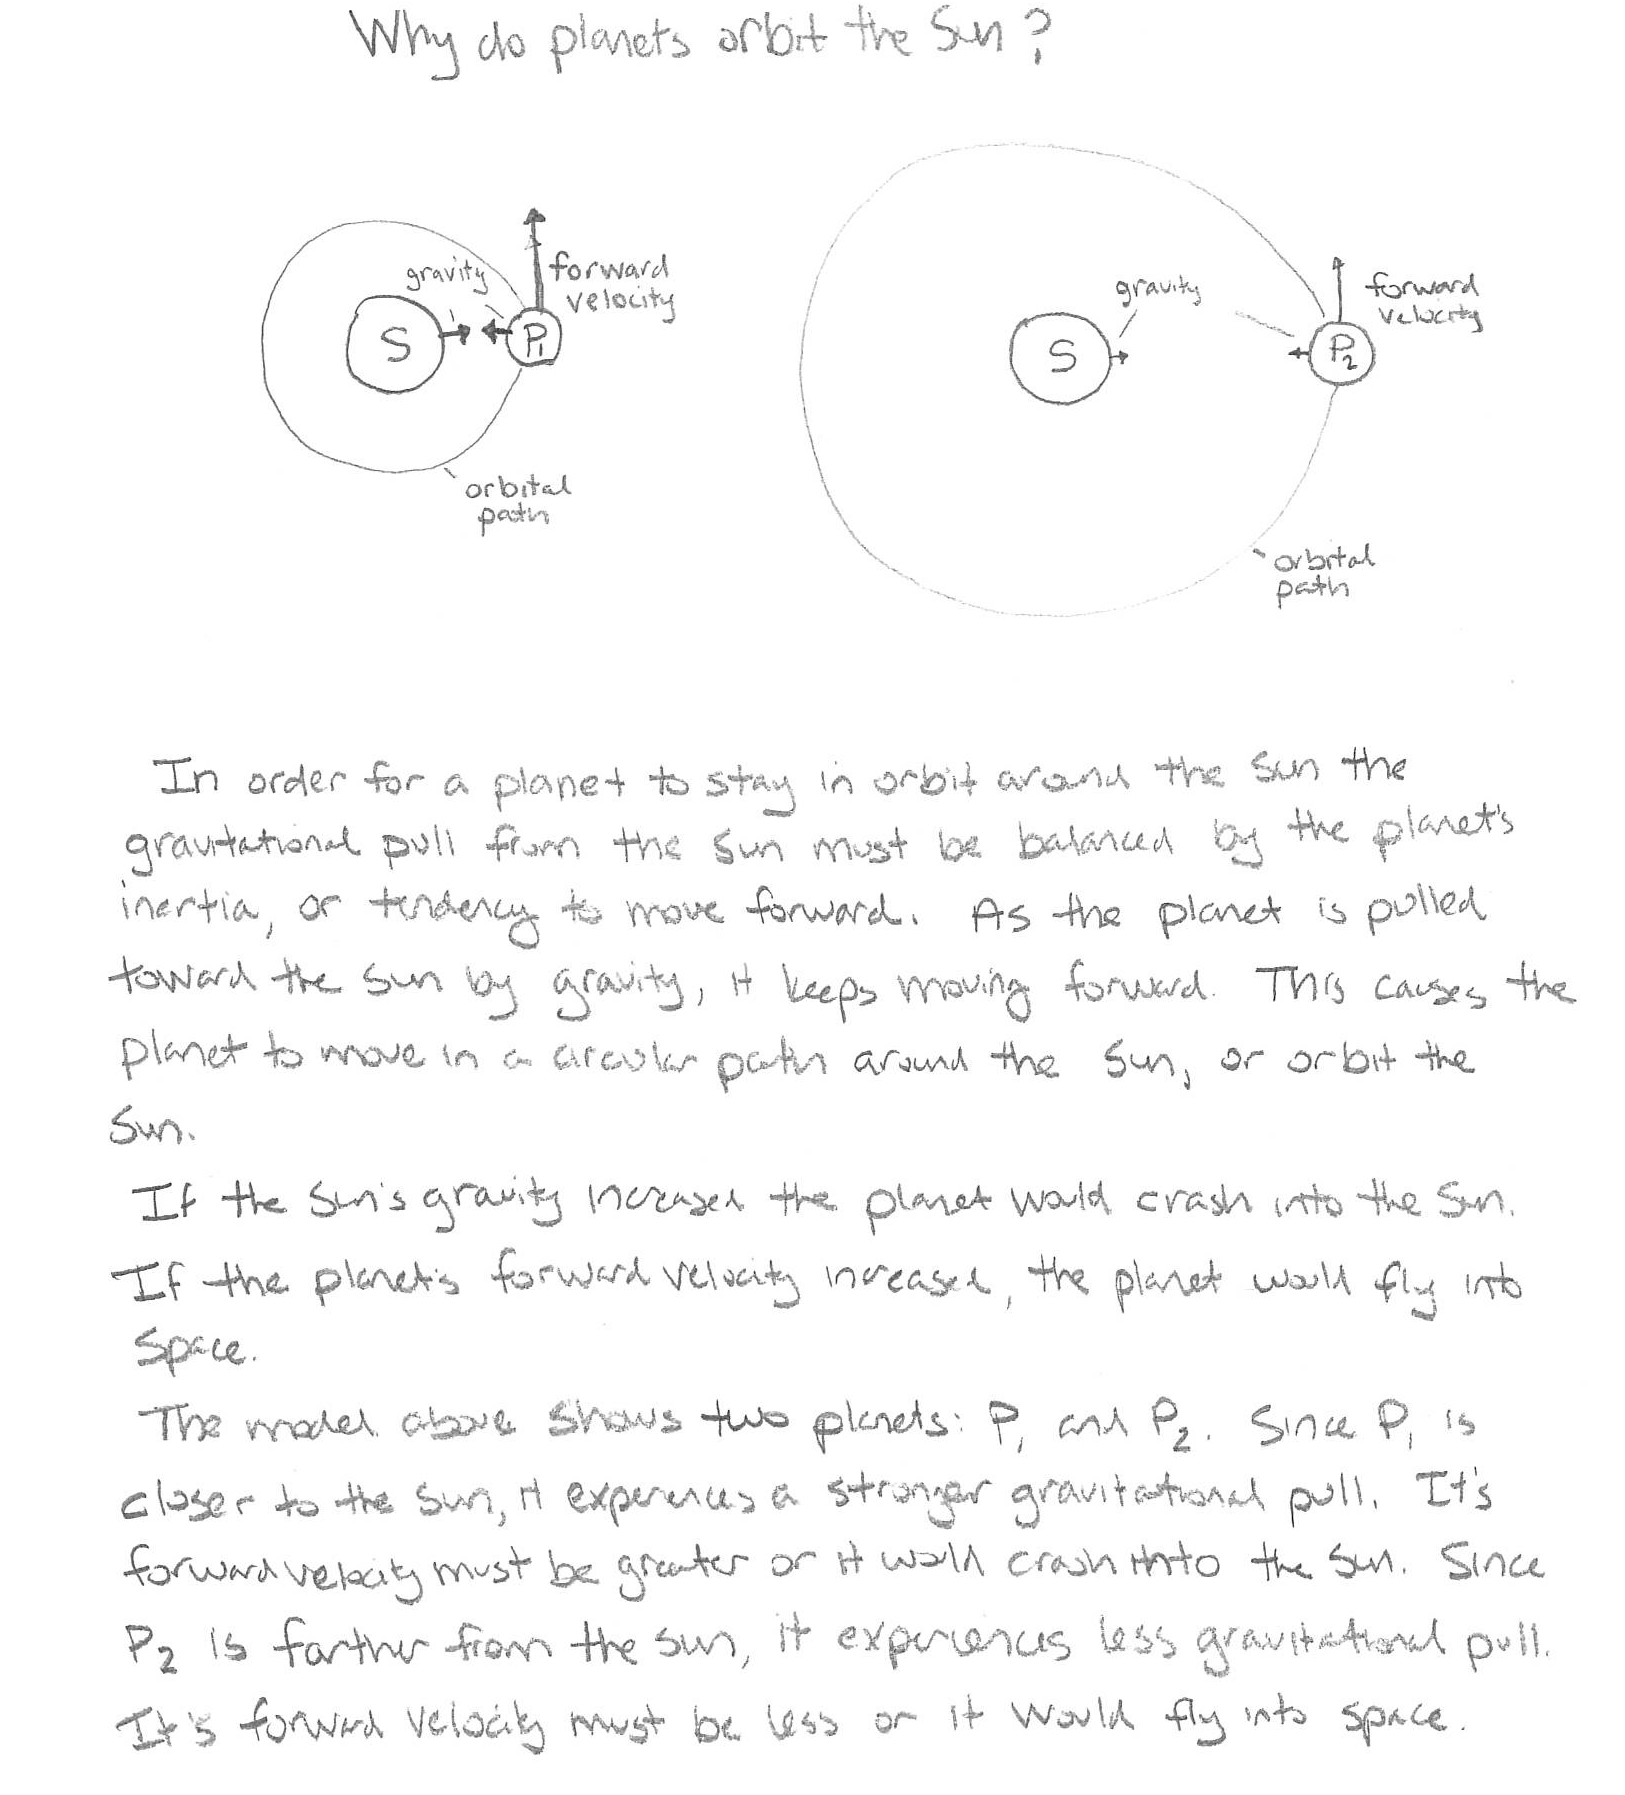 Why do planets orbit the Sun?
gravity
forward
velocity
S
P1
orbital
path
gravity
forward
velocity
S
P2
orbital
path
In order for a planet to stay in orbit around the Sun the
gravitational pull from the Sun must be balanced by the planet's
inertia, or tendency to move forward. As the planet is pulled
toward the Sun by gravity, it keeps moving forward. This causes the
planet to move in a circular path around the Sun, or orbit the
Sun.
If the Sun's gravity increased the planet would crash into the Sun.
If the planet's forward velocity increased, the planet would fly into
space.
The model above shows two planets: P1 and P2. Since P1 is
closer to the Sun, it experiences a stronger gravitational pull. It's
forward velocity must be greater or it would crash into the Sun. Since
P2 is farther from the Sun, it experiences less gravitational pull.
It's forward velocity must be less or it would fly into space.